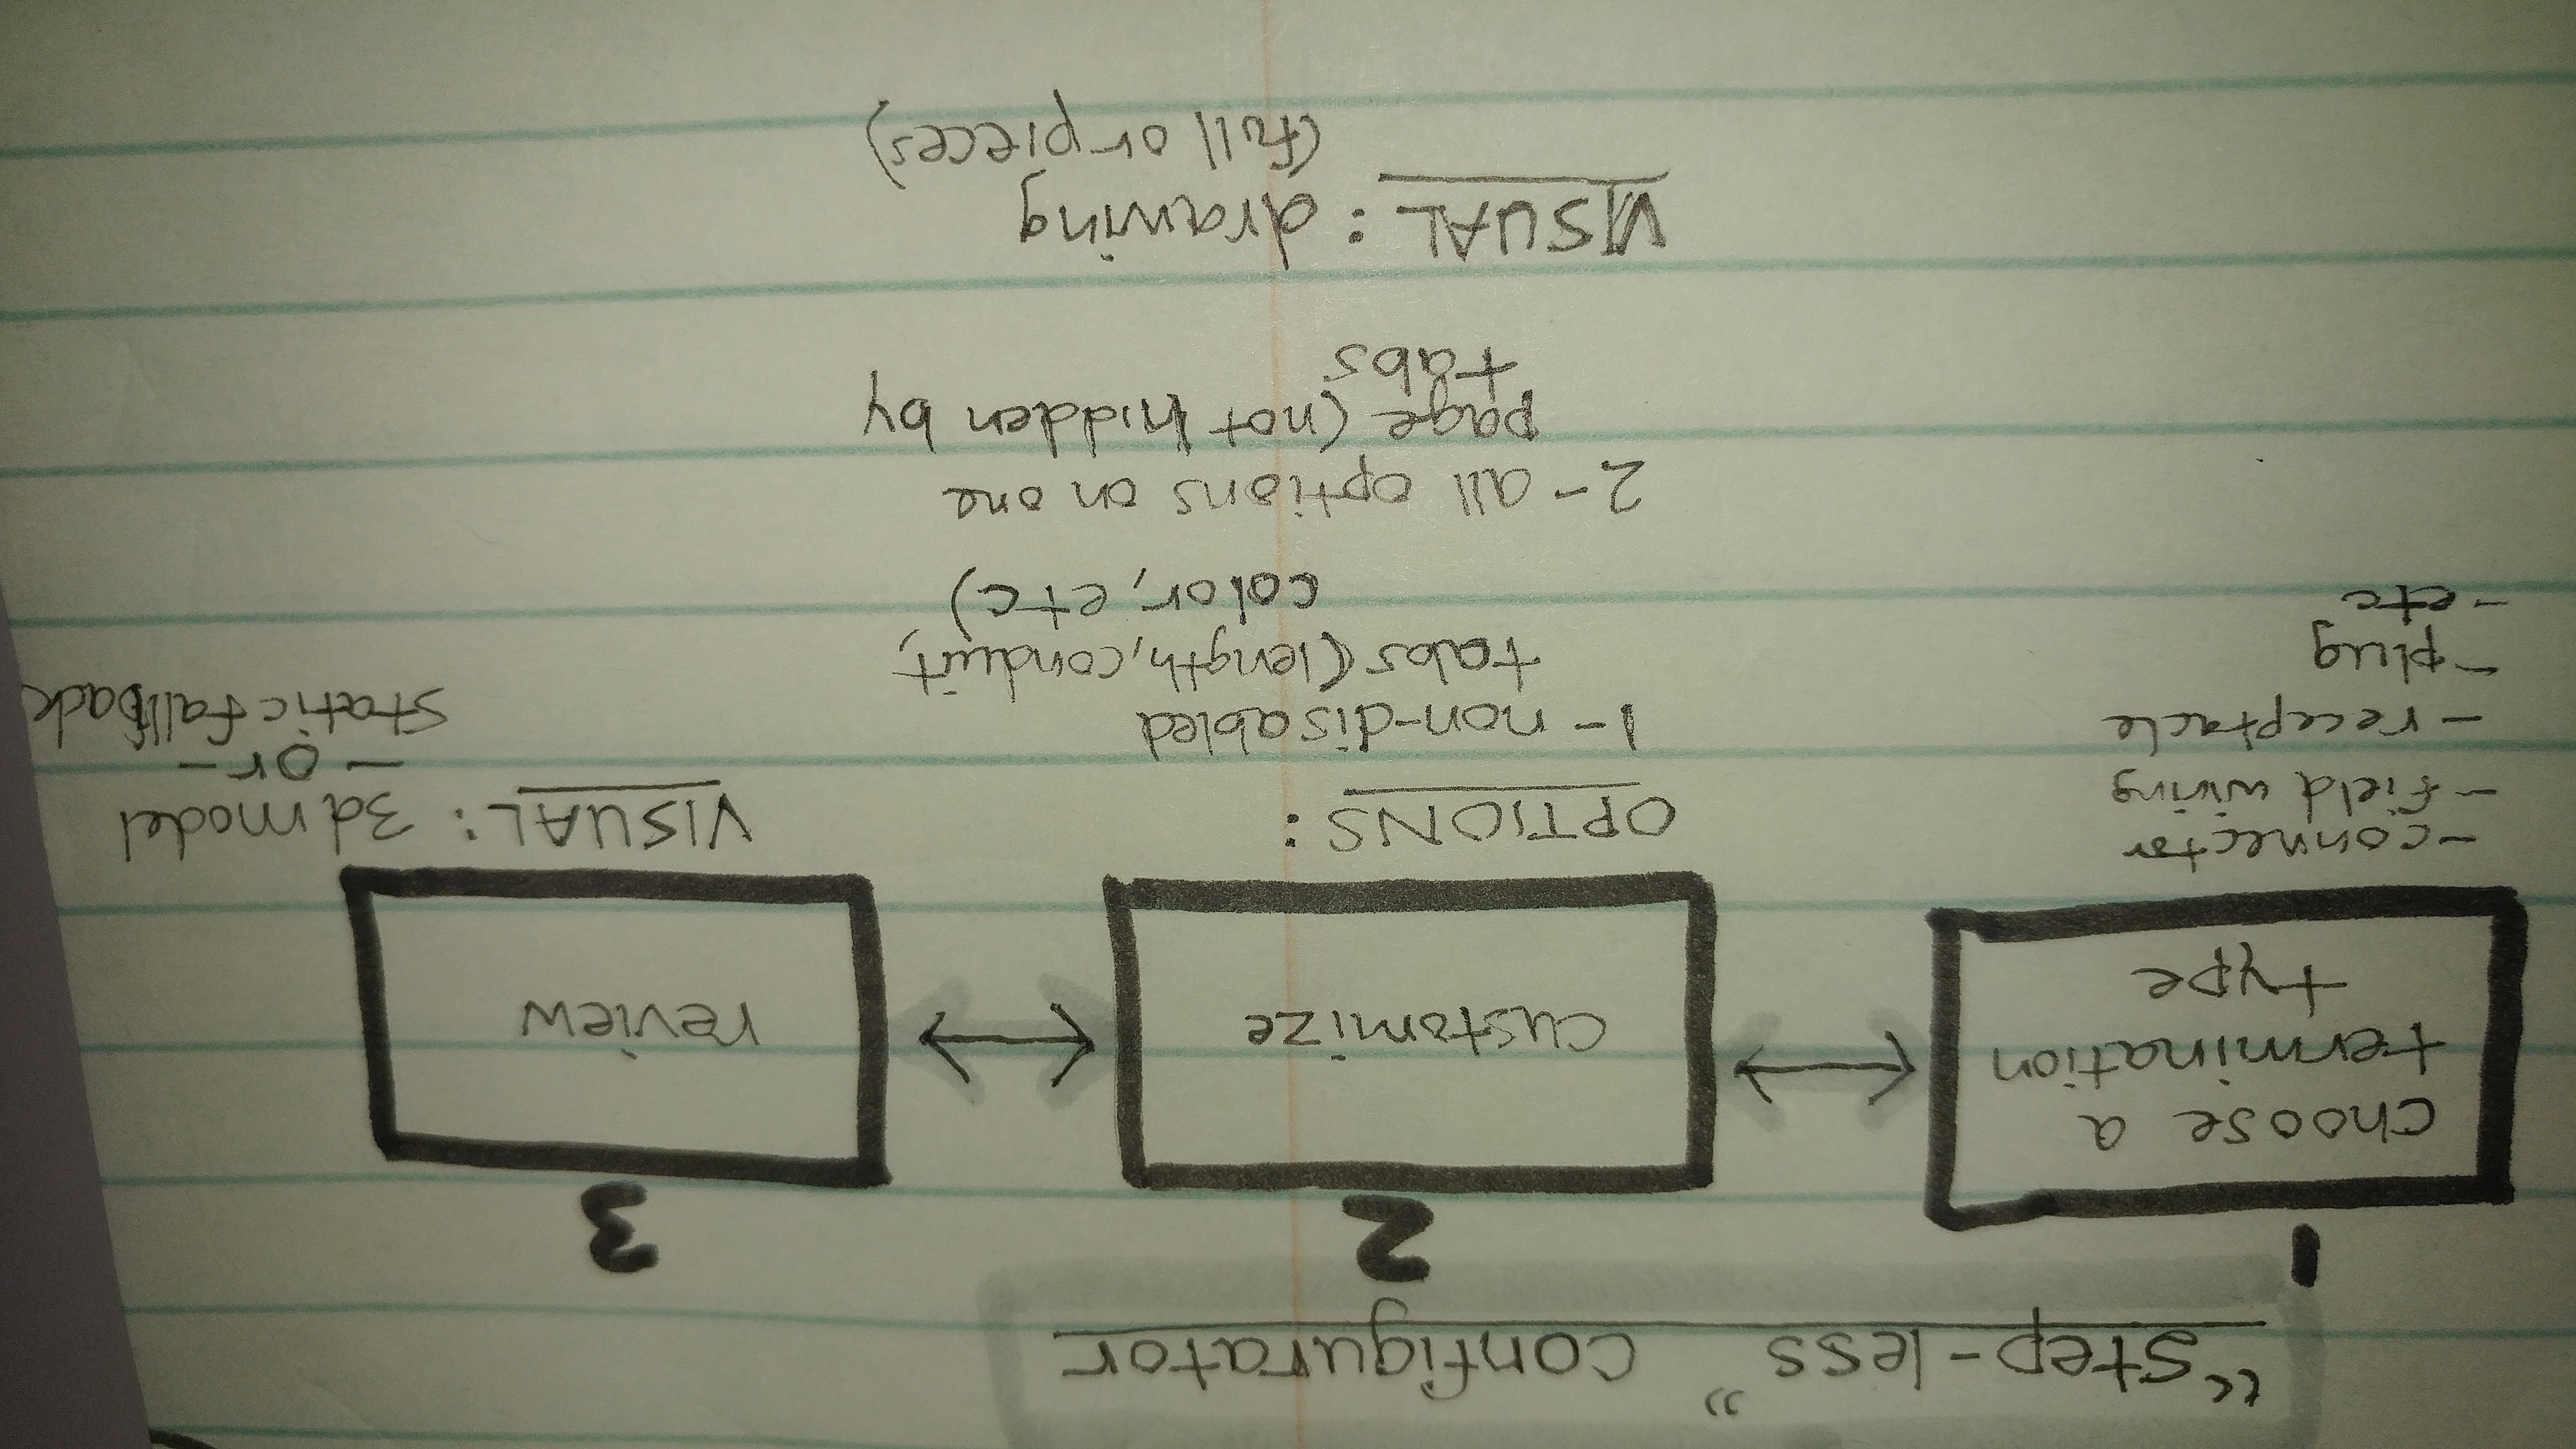 "step-less" configurator
1
choose a
termination
type
- connector
- field wiring
- receptacle
- plug
- etc
2
customize
OPTIONS:
1- non-disabled
tabs (length, conduit,
color, etc)
2- all options on one
page (not hidden by
tabs
VISUAL: drawing
(full or pieces)
3
review
VISUAL: 3d model
- or -
static fallback